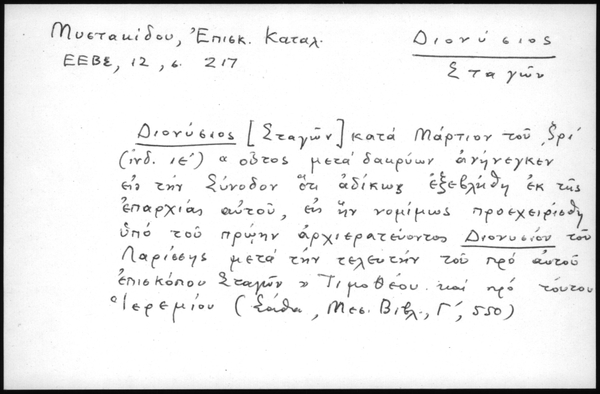 Μυστακίδου, Ἐπισκ. Καταλ.
ΕΕΒΣ, 12, σ. 217
Διονύσιος
Σταγῶν
Διονύσιος [Σταγῶν] κατά Μάρτιον τοῦ ͵ζρι´
(ἰνδ. ιε´) "οὗτος μετά δακρύων ἀνήνεγκεν
εἰς τήν Σύνοδον ὅτι ἀδίκως ἐξεβλήθη ἐκ τῆς
ἐπαρχίας αὐτοῦ, εἰς ἥν νομίμως προεχειρίσθη
ὑπό τοῦ πρώην ἀρχιερατεύοντος Διονυσίου τοῦ
Λαρίσσης μετά τήν τελευτήν τοῦ πρό αὐτοῦ
ἐπισκόπου Σταγῶν " Τιμοθέου. καί πρό τούτου
Ἱερεμίου (Σάθα, Μεσ. Βιβλ., Γ´, 550)